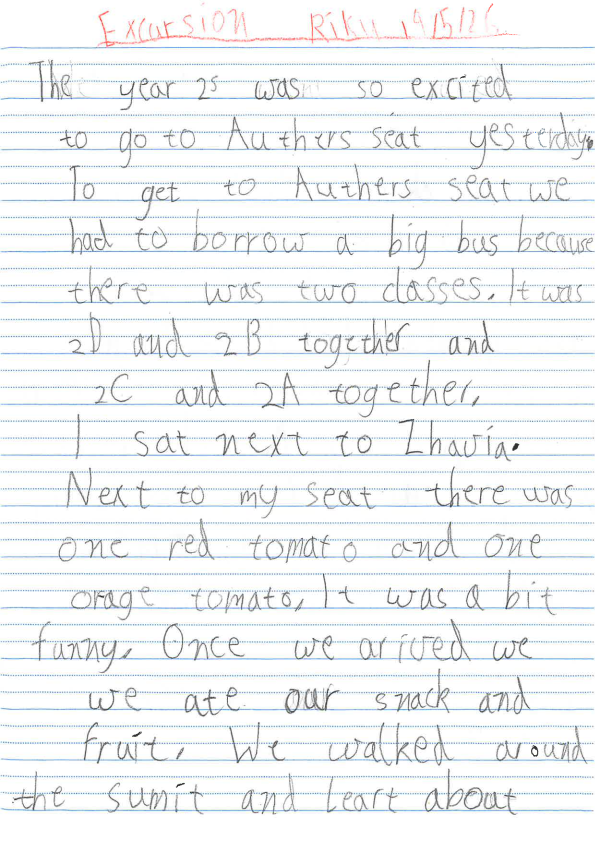 Excursion Riku 19/5/26
The year 2s was so excited
to go to Authers seat yesterday.
To get to Authers seat we
had to borrow a big bus because
there was two classes. It was
2D and 2B together and
2C and 2A together.
I sat next to Zhavia.
Next to my seat there was
one red tomato and one
orage tomato. It was a bit
funny. Once we arived we
we ate our snack and
fruit. We walked around
the sumit and leart about